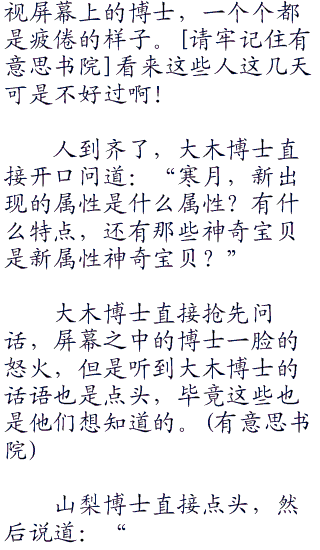 视屏幕上的博士，一个个都
是疲倦的样子。[请牢记住有
意思书院]看来这些人这几天
可是不好过啊！
人到齐了，大木博士直
接开口问道：“寒月，新出
现的属性是什么属性？有什
么特点，还有那些神奇宝贝
是新属性神奇宝贝？”
大木博士直接抢先问
话，屏幕之中的博士一脸的
怒火，但是听到大木博士的
话语也是点头，毕竟这些也
是他们想知道的。(有意思书
院)
山梨博士直接点头，然
后说道：“